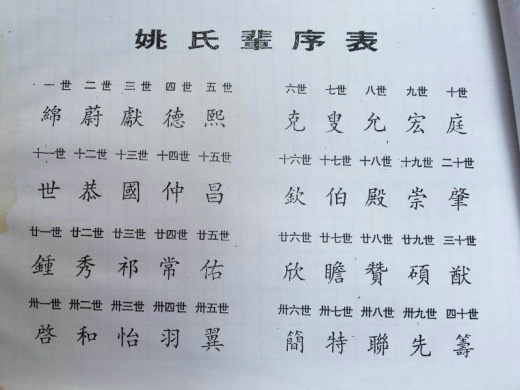 姚氏輩序表
一世 二世 三世 四世 五世 六世 七世 八世 九世 十世
綿 蔚 獻 德 熙 克 叟 允 宏 庭
十一世 十二世 十三世 十四世 十五世 十六世 十七世 十八世 十九世 二十世
世 恭 國 仲 昌 欽 伯 殿 崇 肇
廿一世 廿二世 廿三世 廿四世 廿五世 廿六世 廿七世 廿八世 廿九世 三十世
鍾 秀 祁 常 佑 欣 瞻 贊 碩 猷
卅一世 卅二世 卅三世 卅四世 卅五世 卅六世 卅七世 卅八世 卅九世 四十世
啓 和 怡 羽 翼 簡 特 聯 先 籌